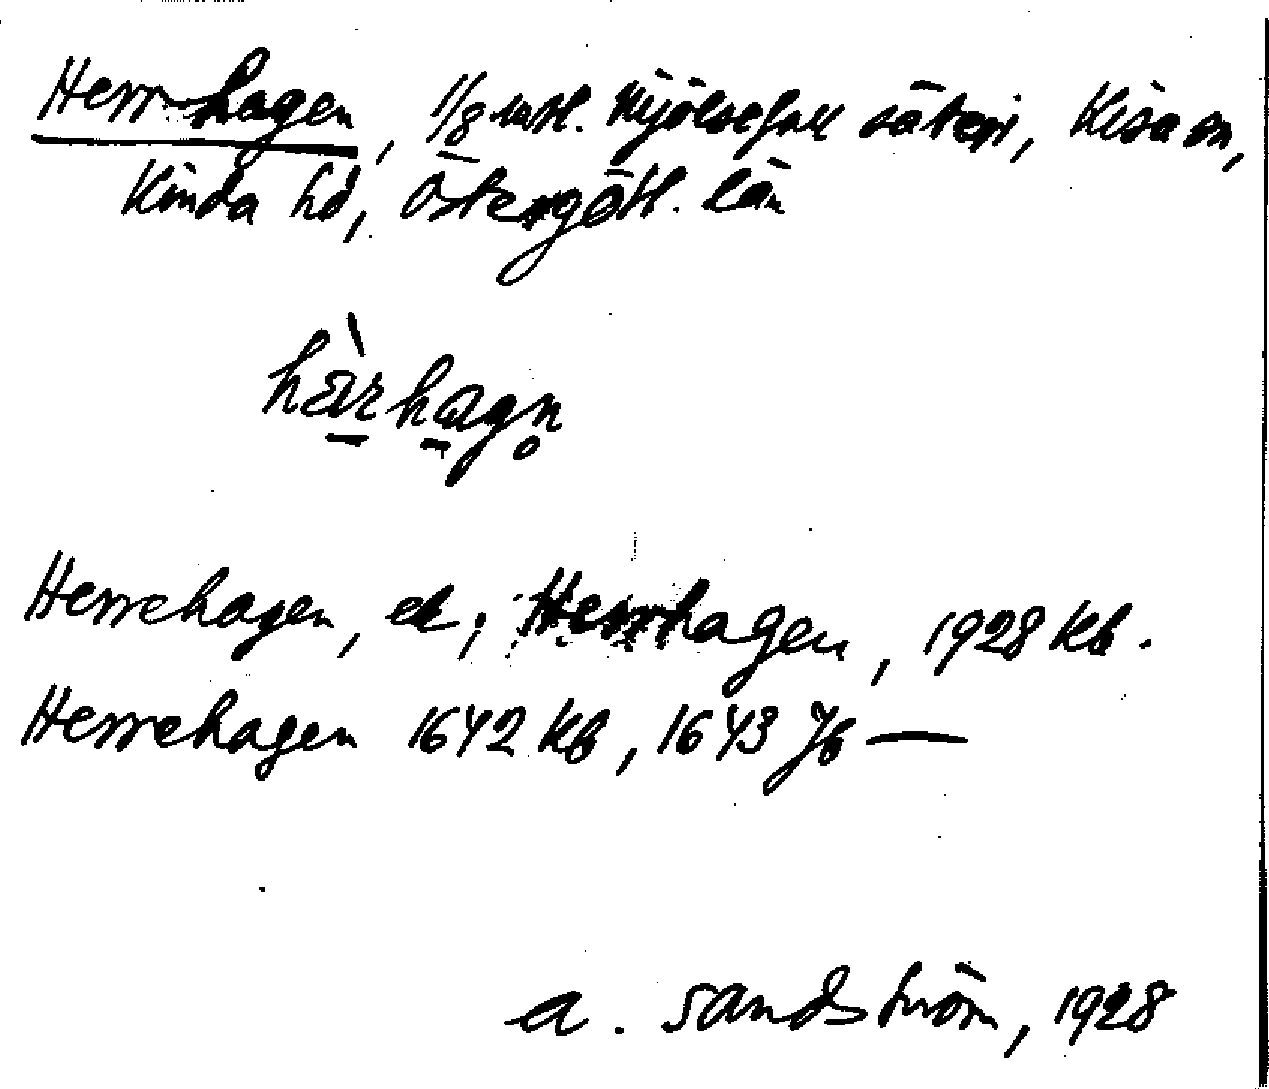 Herrhagen, 1/8 mtl. säteri, Kisa sn,
Kinda hd, Östergötl. län
hàrhagn̥
Herrehagen, el; Herrhagen, 1928 kb.
Herrehagen 1642 kb, 1643 Jb —
A. Sandström, 1928